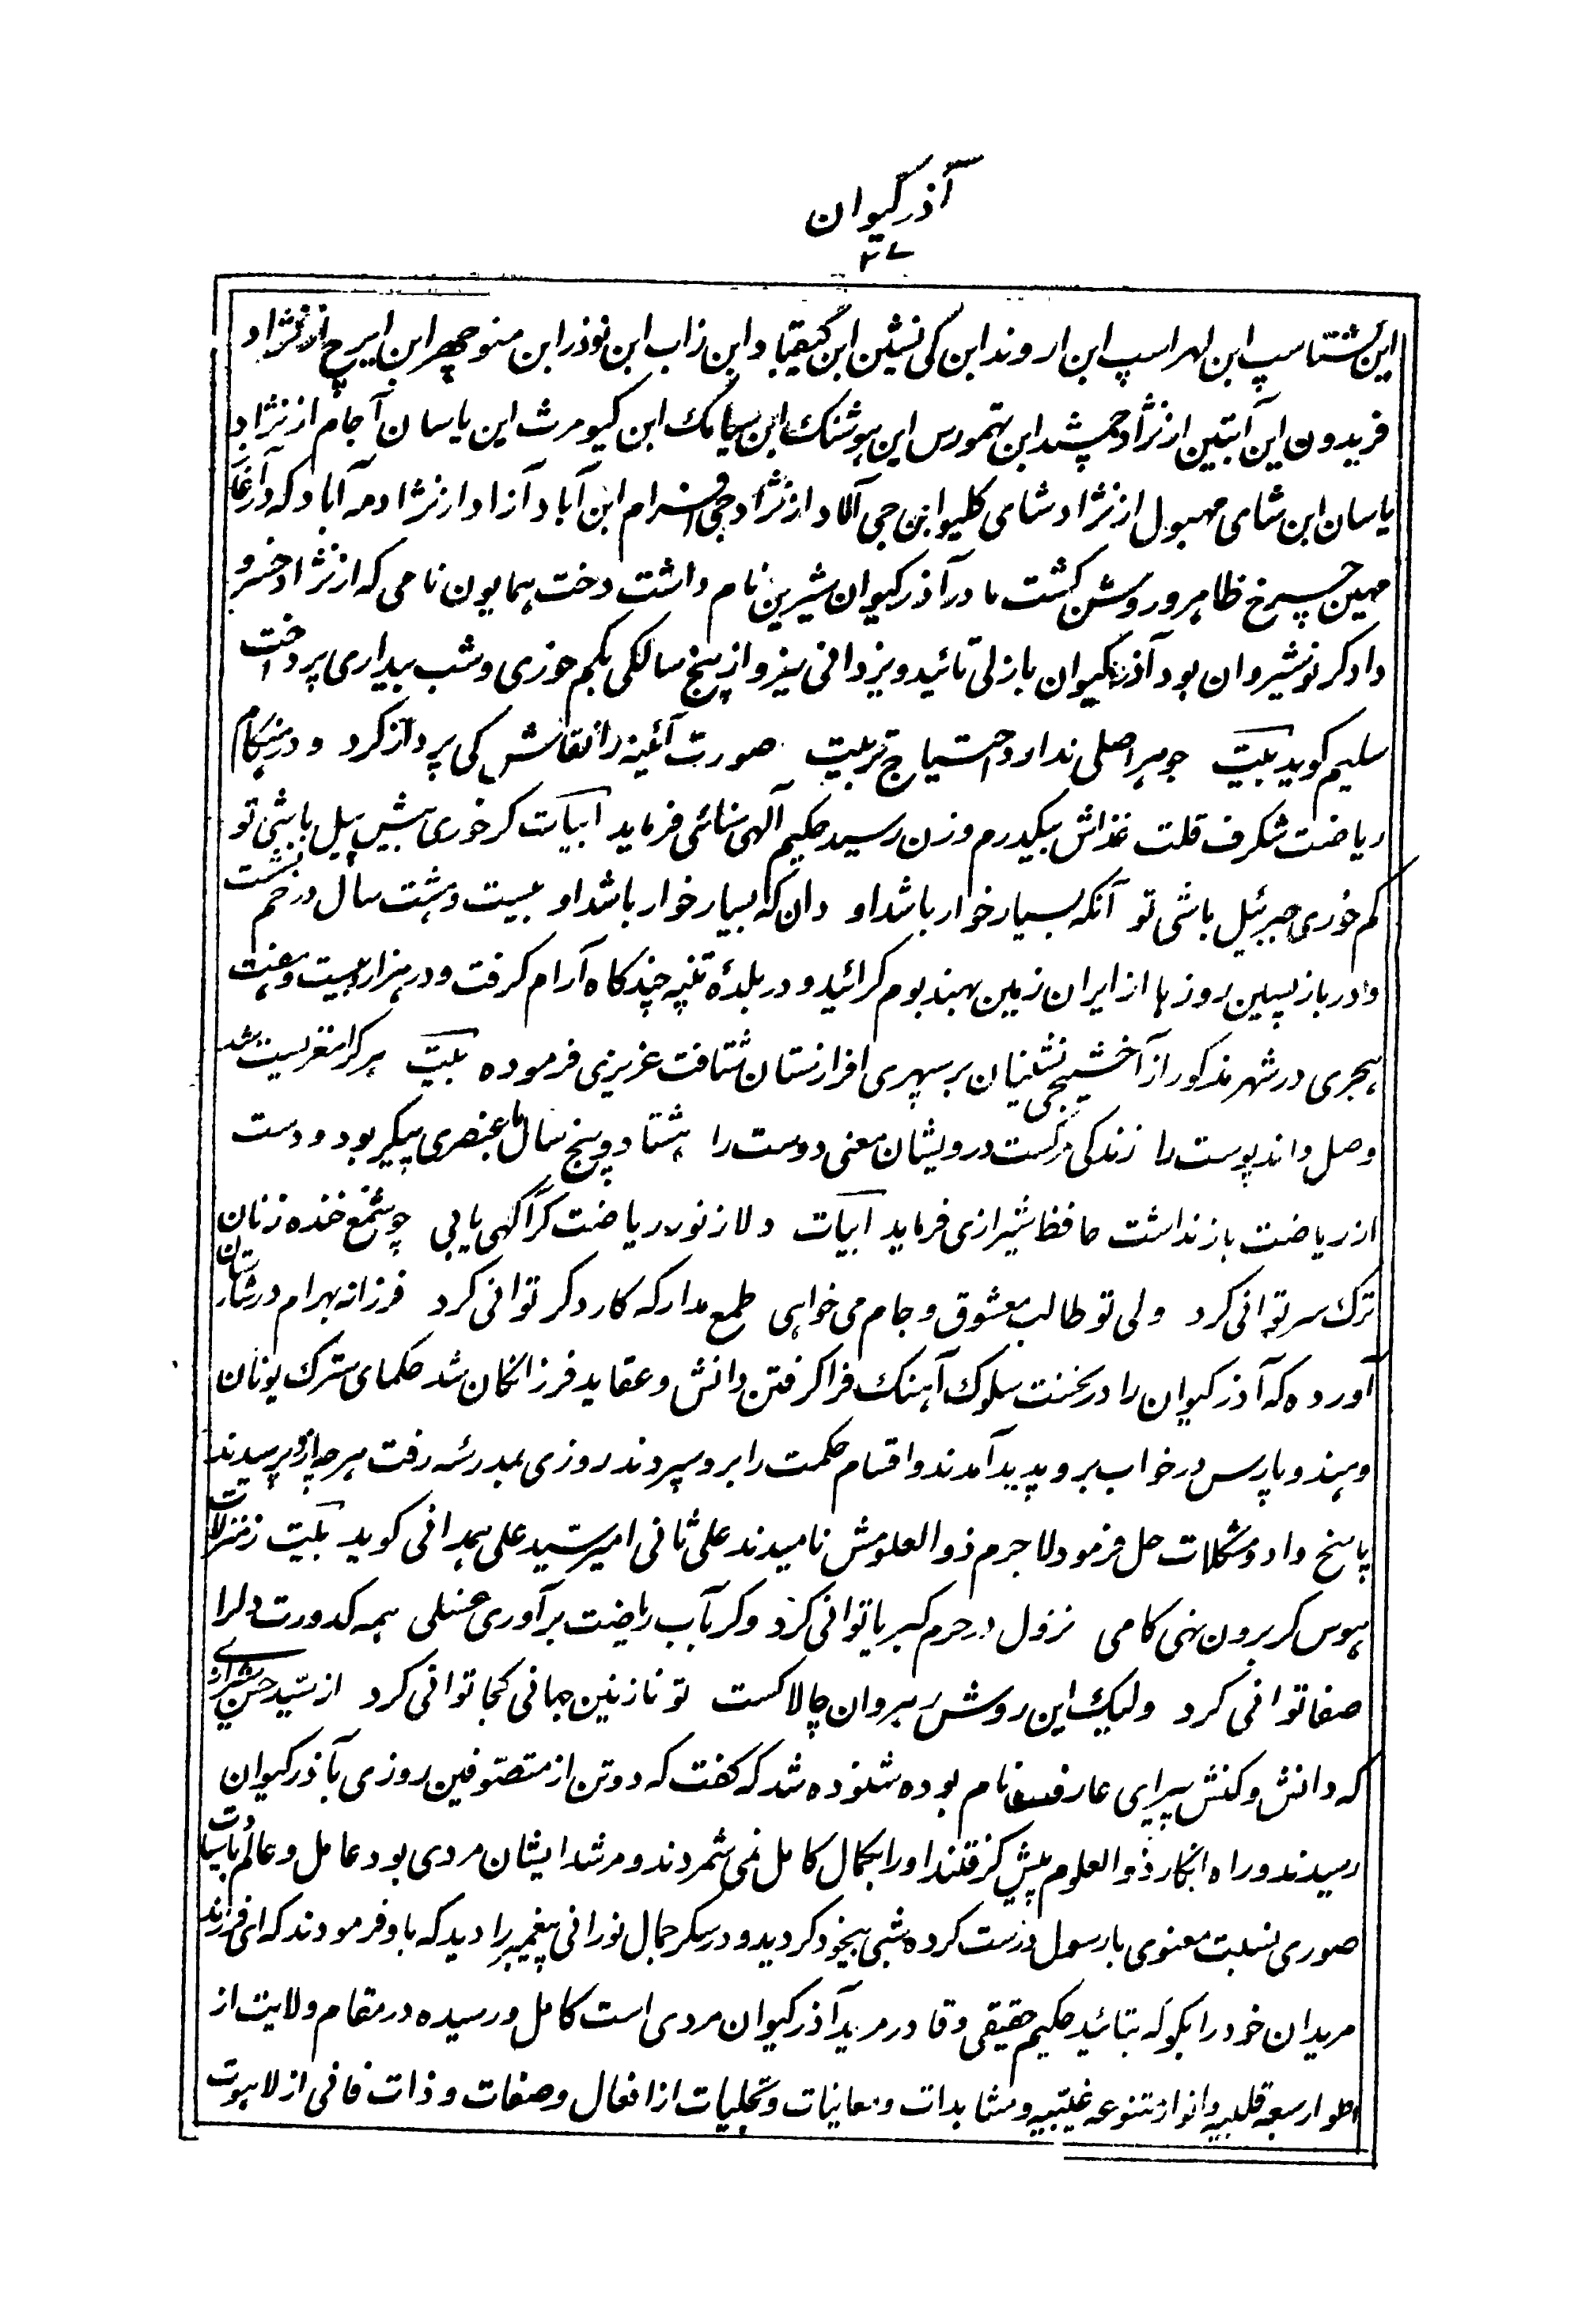 آذر کیوان
۲۷
ابن گشتاسپ ابن لهراسپ ابن اروند ابن کی نشین ابن کیقباد ابن زاب ابن نوذر ابن منوچهر ابن ایرج از نژاد
فریدون ابن آبتین از نژاد جمشید ابن تهمورس ابن هوشنک ابن سیامک ابن کیومرث ابن یاسان آجام از نژاد
یاسان ابن شای مهبول از نژاد شای کلیو ابن جی آلاد از نژاد جی افرام ابن آباد آزاد از نژاد مه آباد که در آغاز
مهین چرخ ظاهر و روشن کشت مادر آذر کیوان شیرین نام داشت دخت همایون نامی که از نژاد خسرو
دادکر نوشیروان بود آذر کیوان بازلی تائید و یزدانی نیرو از پنج سالکی بکم خوری و شب بیداری پرداخت
سلیم کوید بیت جوهر اصلی ندارد احتیاج تربیت صورت آئینه را نقاش کی پرداز کرد و در هنکام
ریاضت شکرف قلت غذاش بیکدرم وزن رسید حکیم آلهی سنائی فرماید ابیات کر خوری بیش پیل باشی تو
کم خوری جبرئیل باشی تو آنکه بسیار خوار باشد او دان که بسیار خوار باشد او بیست و هشت سال در خم نشست
و در بازپسین روزها از ایران زمین بهند بوم کرائید و در بلدهٔ تپنه چند کاه آرام کرفت و در هزار و بیست و هفت
هجری در شهر مذکور از آخشیجی نشینان بر سپهری افرازستان شتافت عزیزی فرموده بیت هرکرا مغزیست باشد
وصل داند پوست را زندگی مرکست درویشان معنی دوست را هشتاد و پنج سال با عنصری پیکر بود و دست
از ریاضت بازنداشت حافظ شیرازی فرماید ابیات دلا ز نور ریاضت کر آکهی یابی چو شمع خنده زنان
ترک سر توانی کرد ولی تو طالب معشوق و جام می خواهی طمع مدار که کار دکر توانی کرد فرزانه بهرام در شارستان
آورده که آذر کیوان را در نخست سلوک آهنک فرا کرفتن دانش و عقاید فرزانکان شد حکمای سترک یونان
و هند و پارس در خواب برو پدید آمدند و اقسام حکمت را برو سپردند روزی بمدرسه رفت هر چه ازو پرسیدند
پاسخ داد و مشکلات حل فرمود لاجرم ذوالعلومش نامیدند علی ثانی امیر سید علی همدانی کوید بیت ز منزلات
هوس کر برون نهی کامی نزول در حرم کبریا توانی کرد وکر بآب ریاضت برآوری غسلی همه کدورت دلرا
صفا توانی کرد ولیک این روش رهروان چالاکست تو نازنین جهانی کجا توانی کرد از سید حسن شیرازی
که دانش و کنش پیرای عارف نام بوده شنوده شد که کفت که دو تن از متصوفین روزی بآذر کیوان
رسیدند و راه انکار ذوالعلوم پیش کرفتند او را بکمال کامل نمی شمردند و مرشد ایشان مردی بود عامل و عالم با سیادت
صوری نسبت معنوی با رسول درست کرده شبی بیخود کردید و در سکر جمال نورانی پیغمبر را دید که باو فرمودند که ای فرزند
مریدان خود را بکو که بتائید حکیم حقیقی و قادر مرید آذر کیوان مردی است کامل و رسیده در مقام ولایت از
اطوار سبعه قلبیه و انوار متنوعه غیبیه و مشاهدات و معاینات و تجلیات از افعال و صفات و ذات فانی از لاهوت